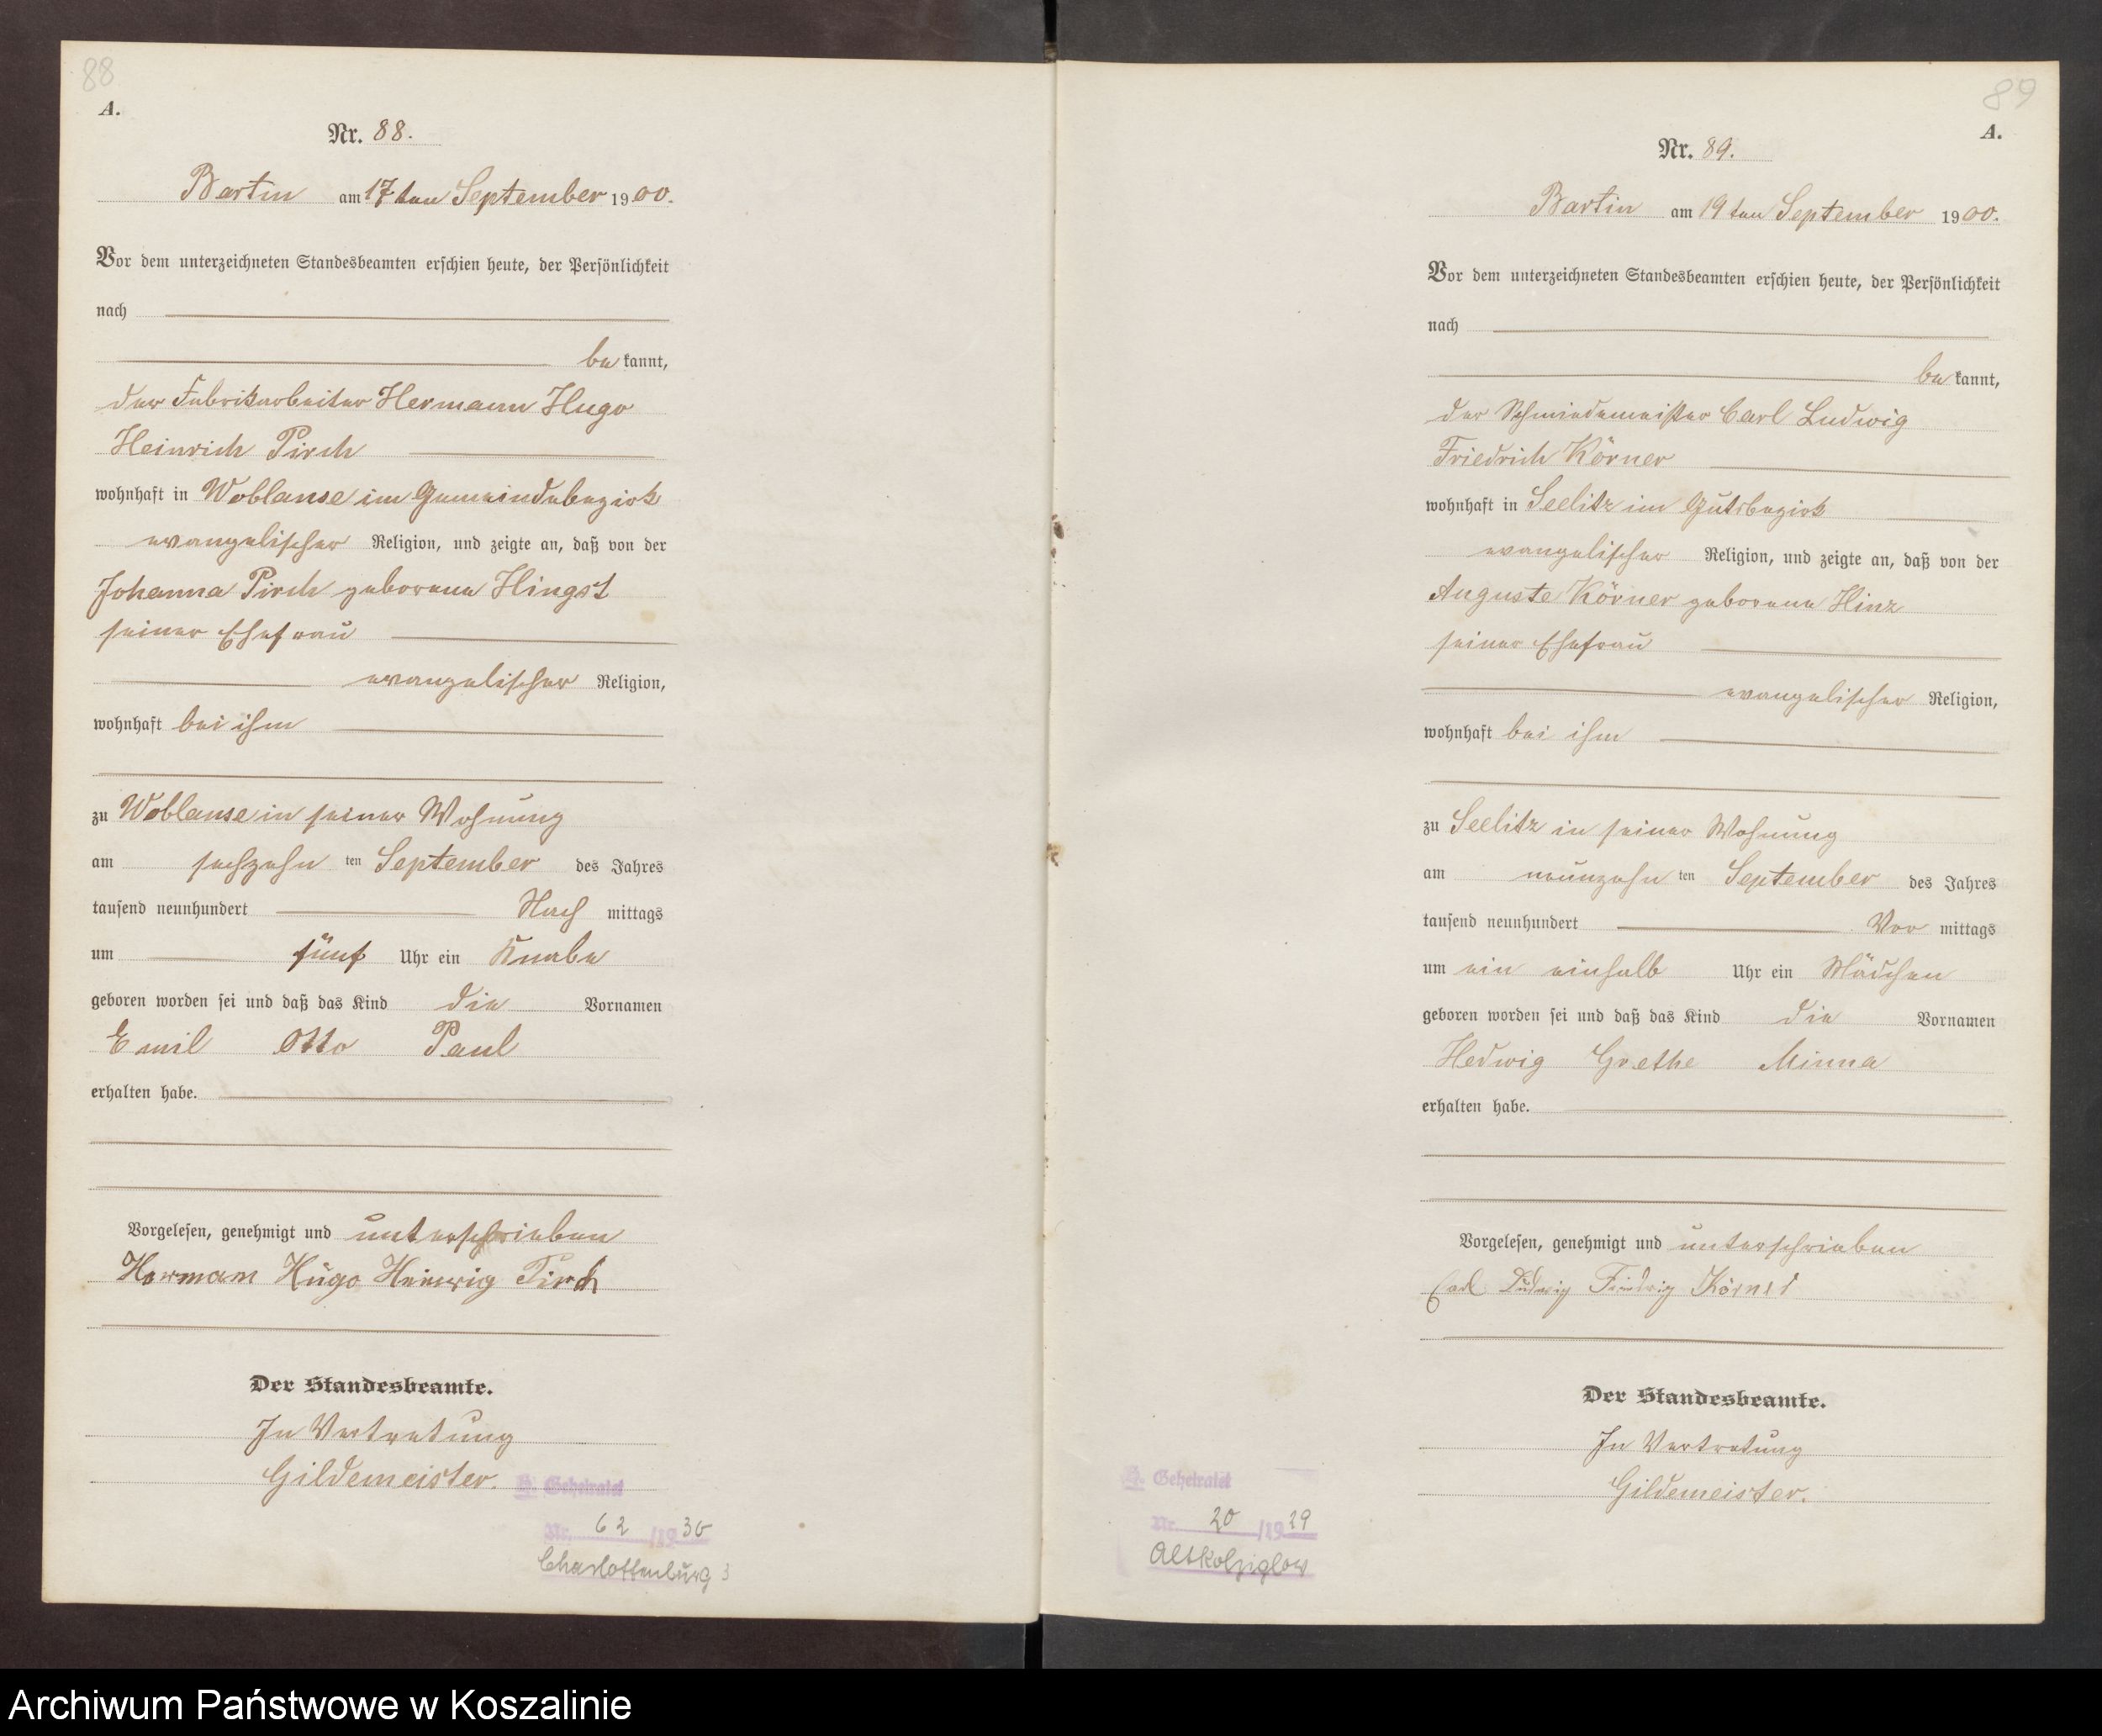 88
A.
Nr. 88.
Bartin am 17ten September 1900.
Vor dem unterzeichneten Standesbeamten erschien heute, der Persönlichkeit
nach
bekannt,
der Fabrikarbeiter Hermann Hugo
Heinrich Pirch
wohnhaft in Woblanse im Gemeindebezirk
evangelischer Religion, und zeigte an, daß von der
Johanna Pirch geborene Hingst
seiner Ehefrau
evangelischer Religion,
wohnhaft bei ihm
zu Woblanse in seiner Wohnung
am sechzehnten September des Jahres
tausend neunhundert Nachmittags
um fünf Uhr ein Knabe
geboren worden sei und daß das Kind die Vornamen
Emil Otto Paul
erhalten habe.
Vorgelesen, genehmigt und unterschrieben
Herman Hugo Heinrig Pirch
Der Standesbeamte.
In Vertretung
Gildemeister.
H. Geheiratet
Nr. 62/1930
Charlottenburg 3
89
A.
Nr. 89.
Bartin am 19ten September 1900.
Vor dem unterzeichneten Standesbeamten erschien heute, der Persönlichkeit
nach
bekannt,
der Schmiedemeister Carl Ludwig
Friedrich Körner
wohnhaft in Seelitz im Gutsbezirk
evangelischer Religion, und zeigte an, daß von der
Auguste Körner geborene Hinz
seiner Ehefrau
evangelischer Religion,
wohnhaft bei ihm
zu Seelitz in seiner Wohnung
am neunzehnten September des Jahres
tausend neunhundert Vormittags
um ein einhalb Uhr ein Mädchen
geboren worden sei und daß das Kind die Vornamen
Hedwig Grethe Minna
erhalten habe.
Vorgelesen, genehmigt und unterschrieben
Carl Ludwig Friedrig Körner
Der Standesbeamte.
In Vertretung
Gildemeister.
H. Geheiratet
Nr. 20/1929
Altkolziglow
Archiwum Państwowe w Koszalinie